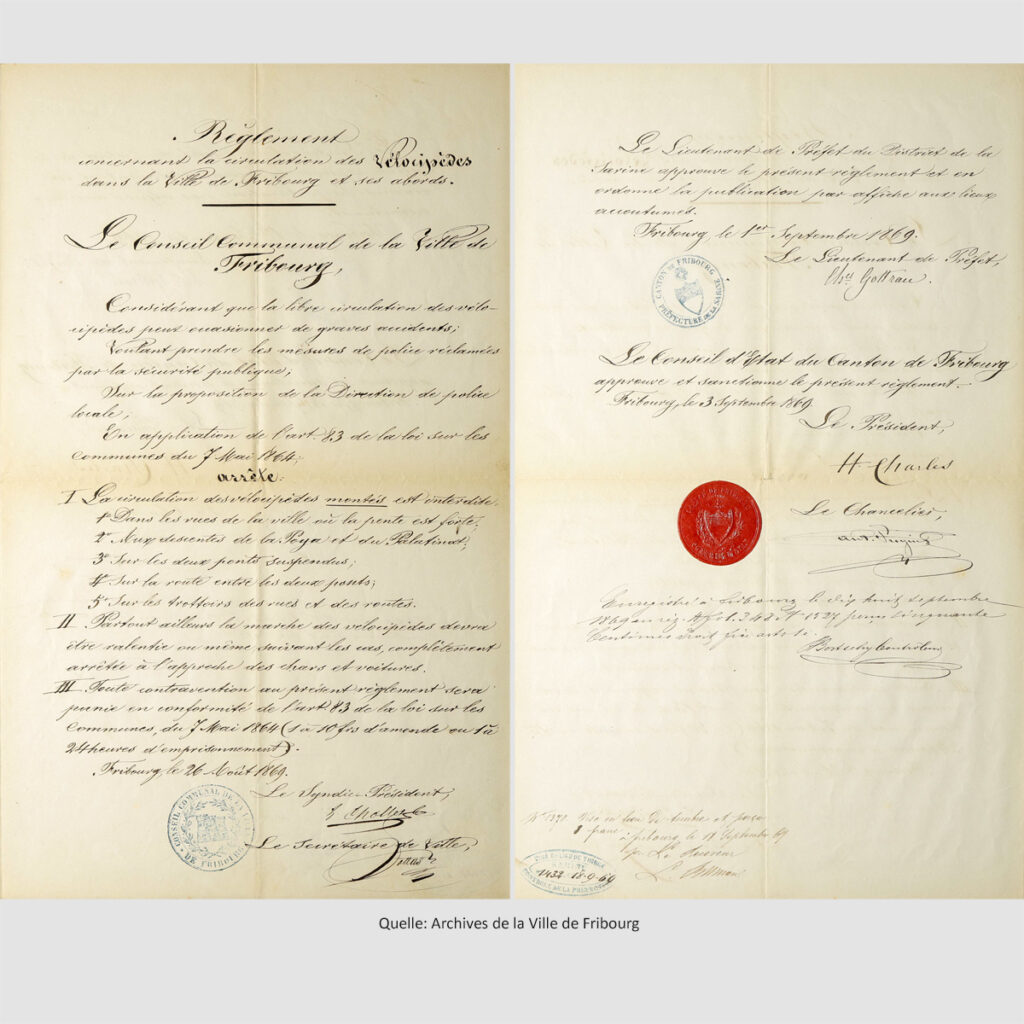 Règlement
concernant la circulation des Vélocipèdes
dans la Ville de Fribourg et ses abords.
Le Conseil Communal de la Ville de
Fribourg,
Considérant que la libre circulation des vélo-
cipèdes peut occasionner de graves accidents;
Voulant prendre les mesures de police réclamées
par la sécurité publique;
Sur la proposition de la Direction de police
locale;
En application de l'art. 83 de la loi sur les
communes du 7 Mai 1864;
arrête:
I La circulation des vélocipèdes montés est interdite.
1° Dans les rues de la ville où la pente est forte.
2° Aux descentes de la Poya et du Palatinat;
3° Sur les deux ponts suspendus;
4° Sur la route entre les deux ponts;
5° Sur les trottoirs des rues et des routes.
II Partout ailleurs la marche des vélocipèdes devra
être ralentie ou même, suivant les cas, complètement
arrêtée à l'approche des chars et voitures.
III Toute contravention au présent règlement sera
punie en conformité de l'art. 83 de la loi sur les
Communes, du 7 Mai 1864 (1 à 10 frs d'amende ou 1 à
24 heures d'emprisonnement).
Fribourg, le 26 Août 1869.
Le Syndic-Président,
Le Secrétaire de Ville,
CONSEIL COMMUNAL DE LA VILLE
DE FRIBOURG
Le Lieutenant de Préfet du District de la
Sarine approuve le présent règlement et en
ordonne la publication par affiche aux lieux
accoutumés.
Fribourg, le 1er Septembre 1869.
Le Lieutenant de Préfet,
Chs Gottrau.
CANTON DE FRIBOURG
PRÉFECTURE DE LA SARINE
Le Conseil d'Etat du Canton de Fribourg
approuve et sanctionne le présent règlement.
Fribourg, le 3 Septembre 1869
Le Président,
H Charles
Le Chancelier,
Enregistré à Fribourg le dix huit septembre
1869 au reg. A fol. 248 N° 1527 pour cinquante
Centimes droit fixe
à fribourg, le 18 Septembre 69
Le Receveur
1432 18-9-69
Quelle: Archives de la Ville de Fribourg